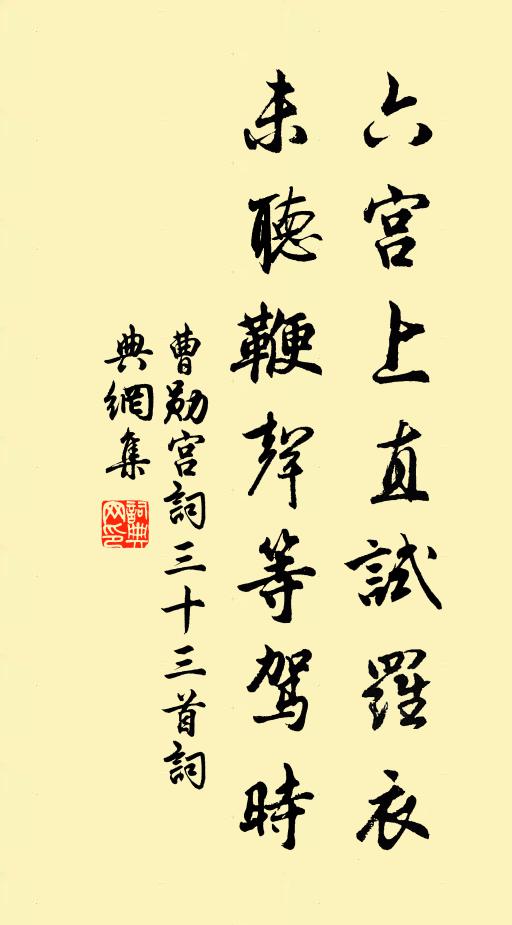 六宫上直試羅衣
未聽鞭聲等駕時
曹勛宫詞三十三首詞
典網集
詞典網印